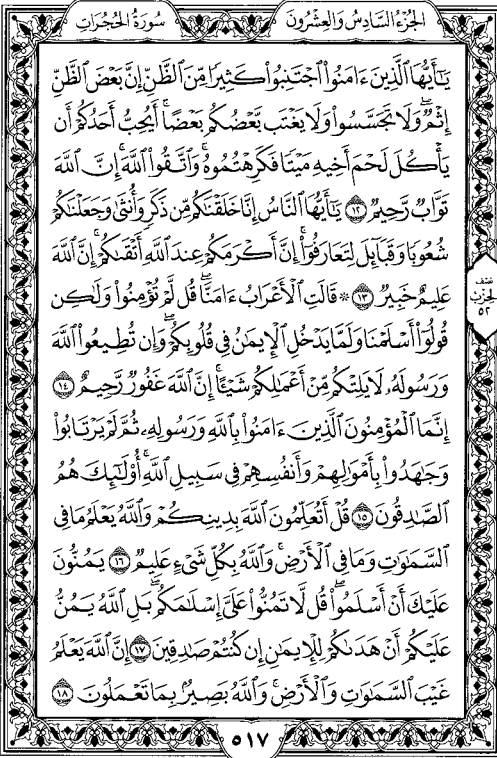 سُورَةُ الحُجُرَاتِ
الجُزْءُ السَّادِسُ وَالعِشْرُونَ
يَـٰٓأَيُّهَا ٱلَّذِينَ ءَامَنُوا۟ ٱجْتَنِبُوا۟ كَثِيرًا مِّنَ ٱلظَّنِّ إِنَّ بَعْضَ ٱلظَّنِّ
إِثْمٌ ۖ وَلَا تَجَسَّسُوا۟ وَلَا يَغْتَب بَّعْضُكُم بَعْضًا ۚ أَيُحِبُّ أَحَدُكُمْ أَن
يَأْكُلَ لَحْمَ أَخِيهِ مَيْتًا فَكَرِهْتُمُوهُ ۚ وَٱتَّقُوا۟ ٱللَّهَ ۚ إِنَّ ٱللَّهَ
تَوَّابٌ رَّحِيمٌ ١٢ يَـٰٓأَيُّهَا ٱلنَّاسُ إِنَّا خَلَقْنَـٰكُم مِّن ذَكَرٍ وَأُنثَىٰ وَجَعَلْنَـٰكُمْ
شُعُوبًا وَقَبَآئِلَ لِتَعَارَفُوٓا۟ ۚ إِنَّ أَكْرَمَكُمْ عِندَ ٱللَّهِ أَتْقَىٰكُمْ ۚ إِنَّ ٱللَّهَ
عَلِيمٌ خَبِيرٌ ١٣ ۞ قَالَتِ ٱلْأَعْرَابُ ءَامَنَّا ۖ قُل لَّمْ تُؤْمِنُوا۟ وَلَـٰكِن
قُولُوٓا۟ أَسْلَمْنَا وَلَمَّا يَدْخُلِ ٱلْإِيمَـٰنُ فِى قُلُوبِكُمْ ۖ وَإِن تُطِيعُوا۟ ٱللَّهَ
وَرَسُولَهُۥ لَا يَلِتْكُم مِّنْ أَعْمَـٰلِكُمْ شَيْـًٔا ۚ إِنَّ ٱللَّهَ غَفُورٌ رَّحِيمٌ ١٤
إِنَّمَا ٱلْمُؤْمِنُونَ ٱلَّذِينَ ءَامَنُوا۟ بِٱللَّهِ وَرَسُولِهِۦ ثُمَّ لَمْ يَرْتَابُوا۟
وَجَـٰهَدُوا۟ بِأَمْوَٰلِهِمْ وَأَنفُسِهِمْ فِى سَبِيلِ ٱللَّهِ ۚ أُو۟لَـٰٓئِكَ هُمُ
ٱلصَّـٰدِقُونَ ١٥ قُلْ أَتُعَلِّمُونَ ٱللَّهَ بِدِينِكُمْ وَٱللَّهُ يَعْلَمُ مَا فِى
ٱلسَّمَـٰوَٰتِ وَمَا فِى ٱلْأَرْضِ ۚ وَٱللَّهُ بِكُلِّ شَىْءٍ عَلِيمٌ ١٦ يَمُنُّونَ
عَلَيْكَ أَنْ أَسْلَمُوا۟ ۖ قُل لَّا تَمُنُّوا۟ عَلَىَّ إِسْلَـٰمَكُم ۖ بَلِ ٱللَّهُ يَمُنُّ
عَلَيْكُمْ أَنْ هَدَىٰكُمْ لِلْإِيمَـٰنِ إِن كُنتُمْ صَـٰدِقِينَ ١٧ إِنَّ ٱللَّهَ يَعْلَمُ
غَيْبَ ٱلسَّمَـٰوَٰتِ وَٱلْأَرْضِ ۚ وَٱللَّهُ بَصِيرٌۢ بِمَا تَعْمَلُونَ ١٨
نصف
الحزب
٥٢
٥١٧